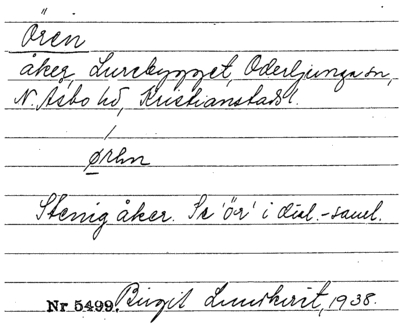 Ören
åker, Lurebygget, Oderljunga sn,
N. Åsbo hd, Kristianstads l.
ørən
Stenig åker. Se 'ör' i dial.-saml.
Nr 5499. Birgit Lundkvist, 1938.